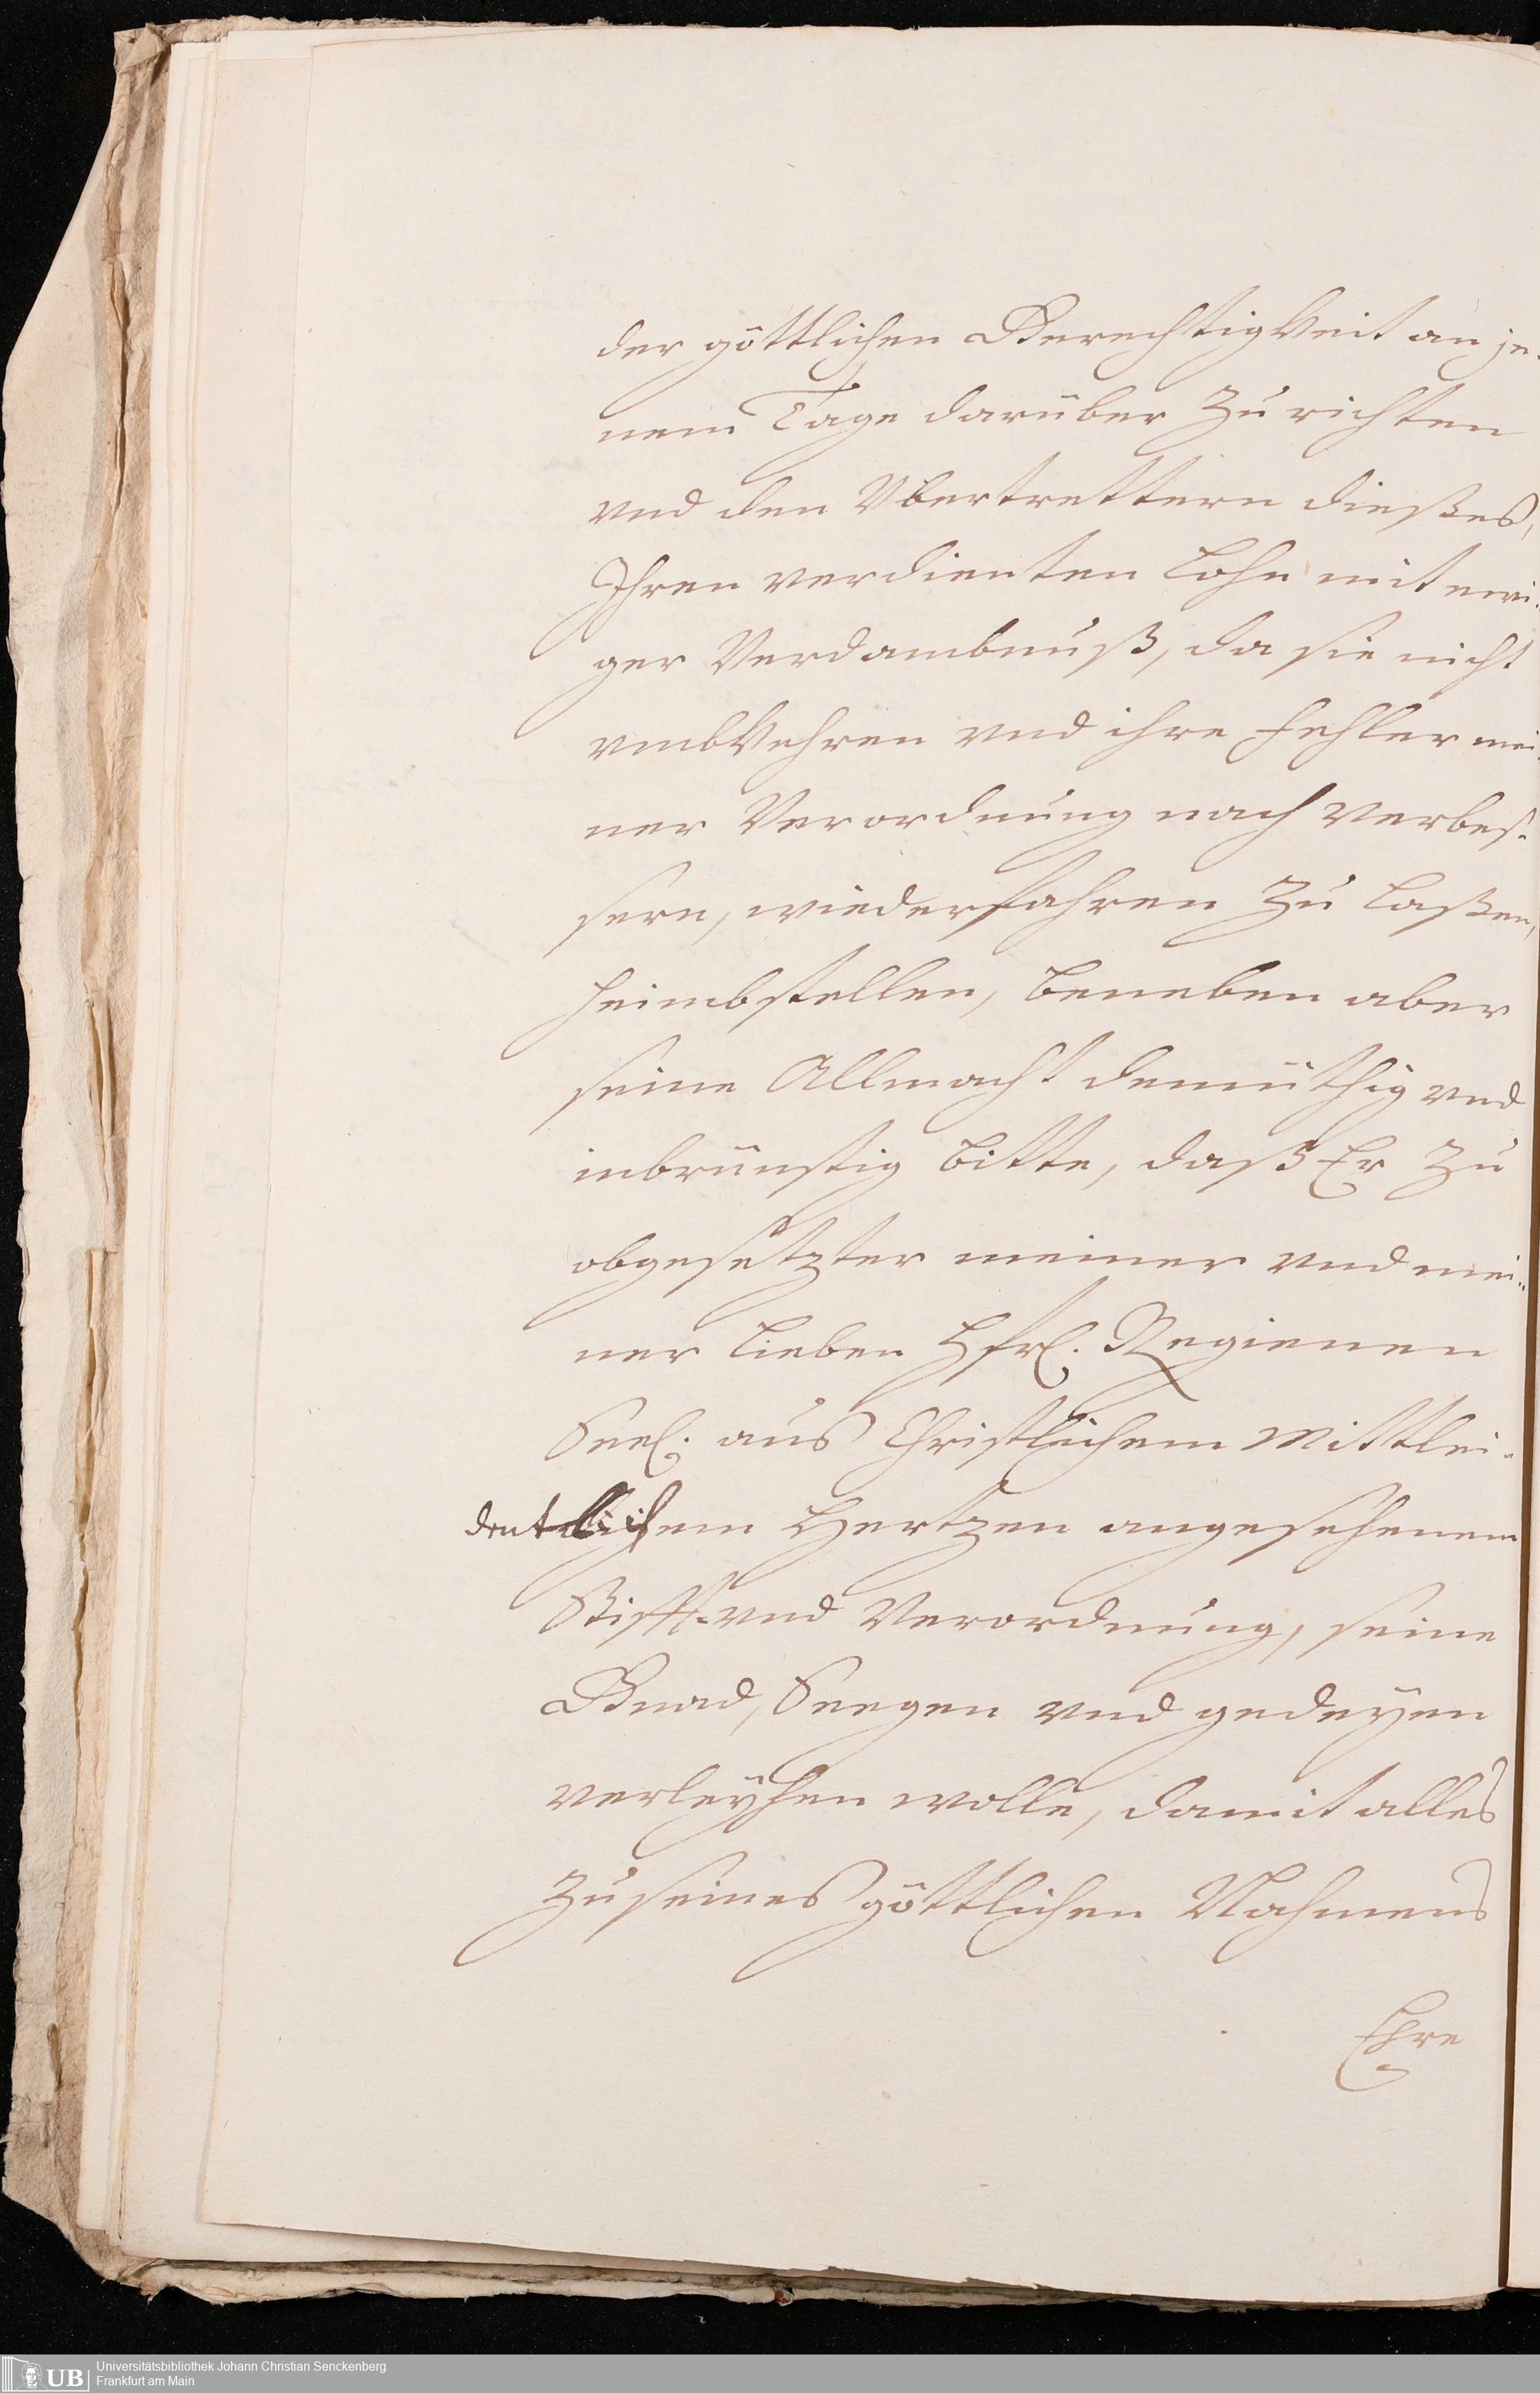 der göttlichen Gerechtigkeit an je-
nem Tage darüber zu richten
vnd den Vbertrettern dießes,
Ihren verdienten Lohn mit ewi-
ger Verdambnuß, da sie nicht
vmbkehren vnd ihre Fehler mei-
ner Verordnung nach verbes-
sern, wiederfahren zu laßen,
heimbstellen, beneben aber
seine Allmacht demüthig vnd
inbrünstig bitte, daß Er zu
obgesetzter meiner vnd mei-
ner lieben Hfrl. Reginen
Seel. aus Christlichem Mittlei-
dentlichem Hertzen angesehenen
Stifft- vnd Verordnung, seine
Gnad, Seegen vnd gedeyen
verleyhen wolle, damit alles
zu seines göttlichen Nahmens
Ehre
Universitätsbibliothek Johann Christian Senckenberg
Frankfurt am Main
UB